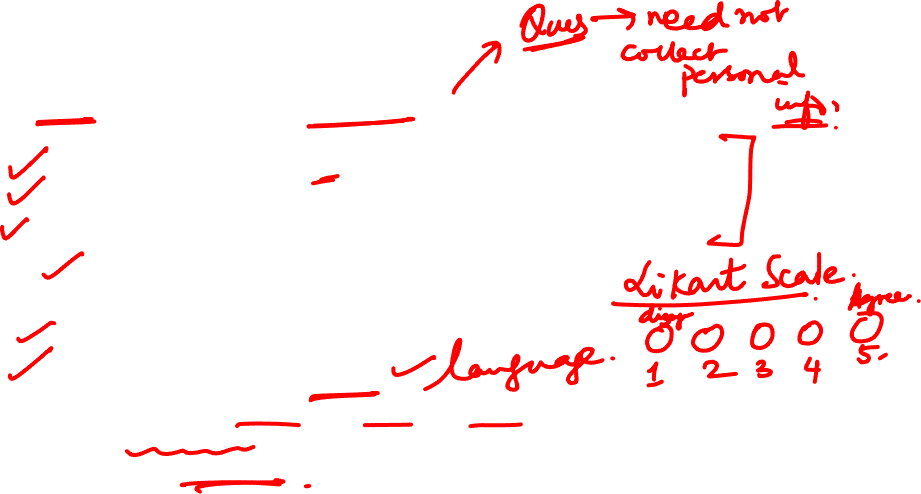 Ques → need not
collect
personal
info.
Likart Scale.
disagr Agree.
1 2 3 4 5.
language.